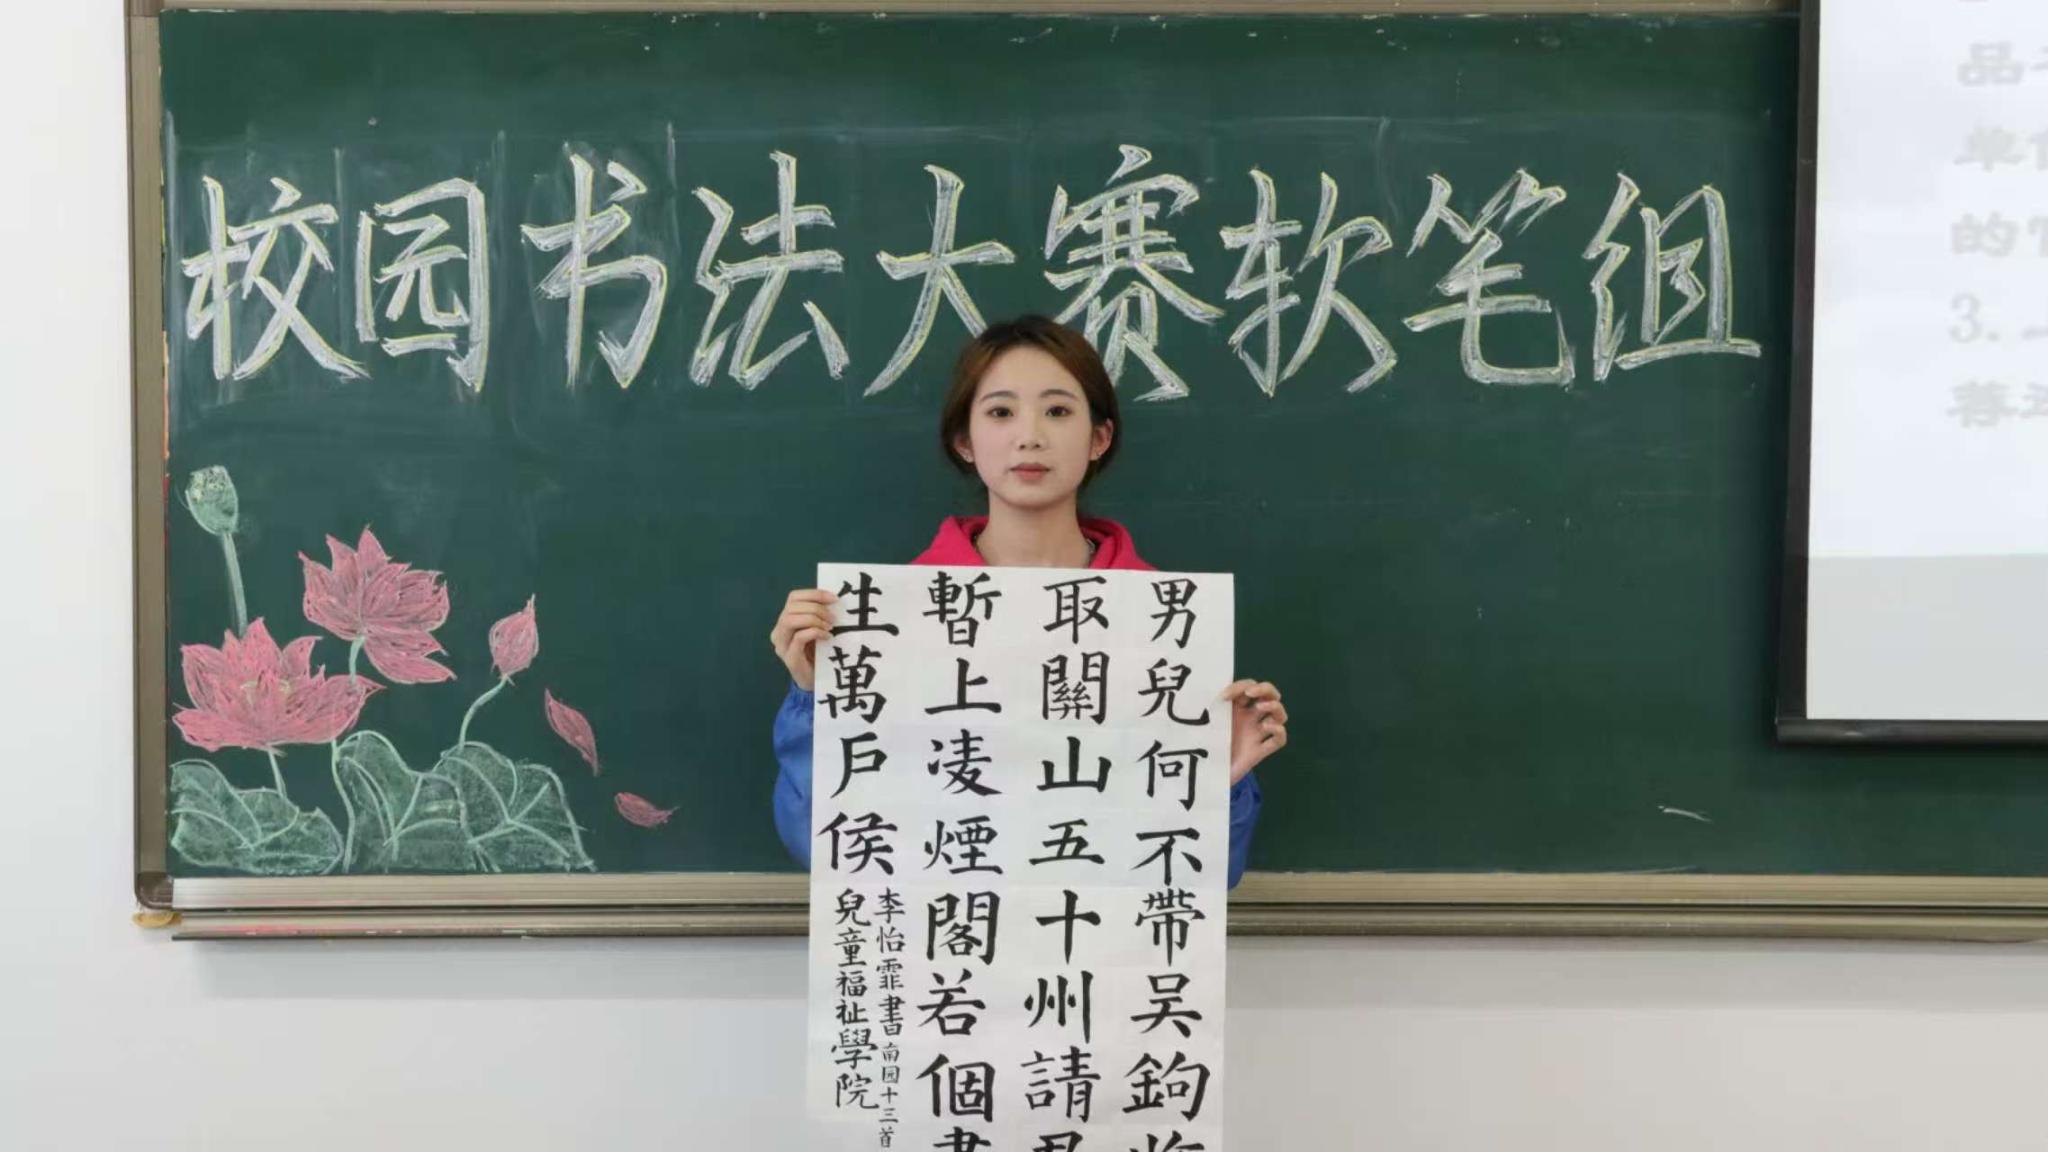 校园书法大赛软笔组
男兒何不帶吴鉤
取關山五十州請
暫上凌煙閣若個
生萬戶侯
李怡霏書南园十三首
兒童福祉學院
品
单
的
3.
荐